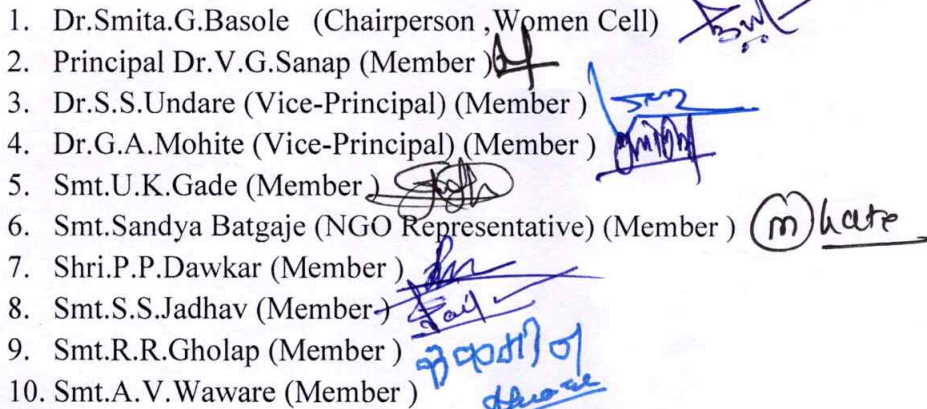 1. Dr.Smita.G.Basole (Chairperson ,Women Cell)
2. Principal Dr.V.G.Sanap (Member )
3. Dr.S.S.Undare (Vice-Principal) (Member )
4. Dr.G.A.Mohite (Vice-Principal) (Member )
5. Smt.U.K.Gade (Member )
6. Smt.Sandya Batgaje (NGO Representative) (Member )
7. Shri.P.P.Dawkar (Member )
8. Smt.S.S.Jadhav (Member )
9. Smt.R.R.Gholap (Member )
10. Smt.A.V.Waware (Member )